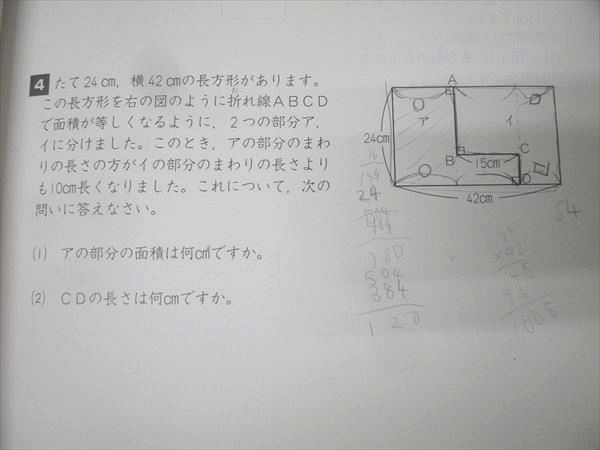 4 たて24cm，横42cmの長方形があります。
この長方形を右の図のように折れ線ABCD
お
で面積が等しくなるように，2つの部分ア，
イに分けました。このとき，アの部分のまわ
りの長さの方がイの部分のまわりの長さより
も10cm長くなりました。これについて，次の
問いに答えなさい。
(1) アの部分の面積は何cm²ですか。
(2) CDの長さは何cmですか。
A
ア
イ
24cm
B
C
15cm
D
42cm
54
24
504
384
120
×42
48
96
1008